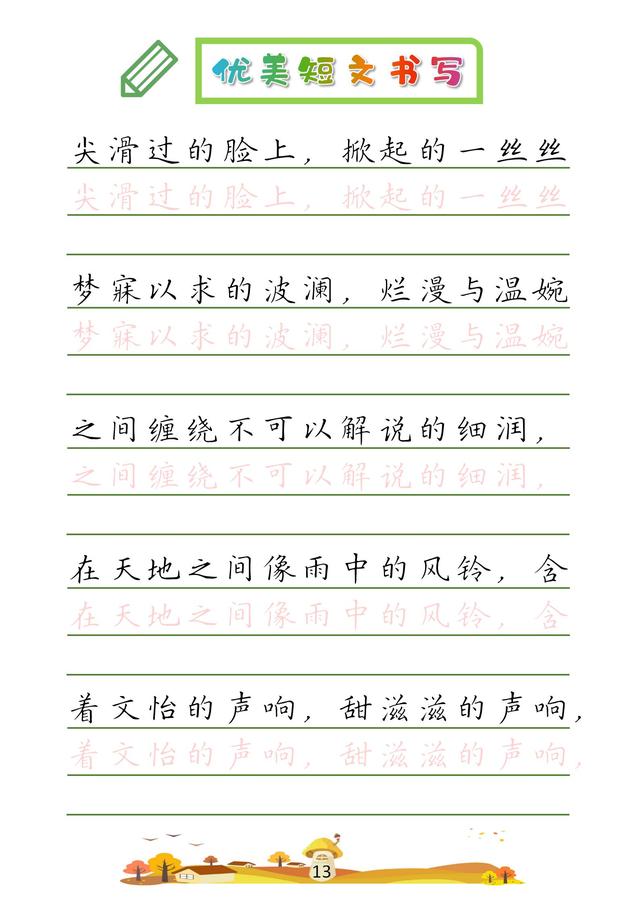 优美短文书写
尖滑过的脸上，掀起的一丝丝
尖滑过的脸上，掀起的一丝丝
梦寐以求的波澜，烂漫与温婉
梦寐以求的波澜，烂漫与温婉
之间缠绕不可以解说的细润，
之间缠绕不可以解说的细润，
在天地之间像雨中的风铃，含
在天地之间像雨中的风铃，含
着文怡的声响，甜滋滋的声响，
着文怡的声响，甜滋滋的声响，
13